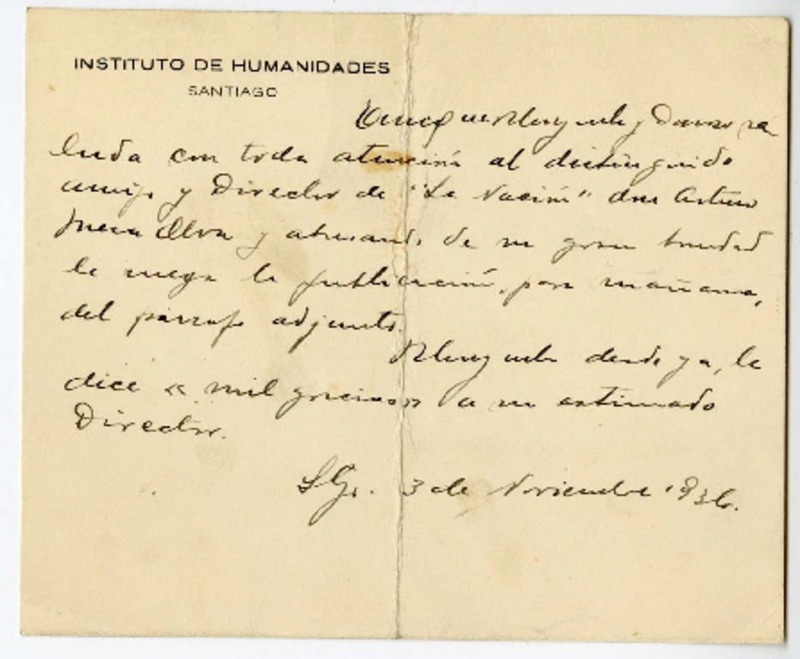 INSTITUTO DE HUMANIDADES
SANTIAGO
Enrique Blanquela y Donoso sa
luda con toda atención al distinguido
amigo y Director de "La Nación" don Arturo
Meza Olva y abusando de su gran bondad
le ruega la publicación, para mañana,
del párrafo adjunto.
desde ya, le
dice « mil gracias » a su estimado
Director.
Stgo. 3 de Noviembre 1936.